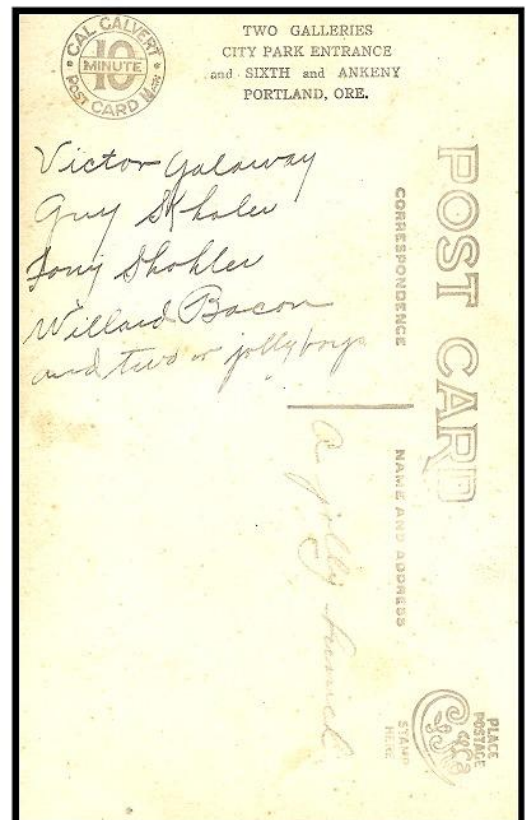 CAL CALVERT
10
MINUTE
POST CARD MAN
TWO GALLERIES
CITY PARK ENTRANCE
and SIXTH and ANKENY
PORTLAND, ORE.
Victor Galaway
Guy
Tony Shohler
Willard Bacon
and two or jolly boys
POST CARD
CORRESPONDENCE
NAME AND ADDRESS
a jolly bunch
PLACE
POSTAGE
STAMP
HERE